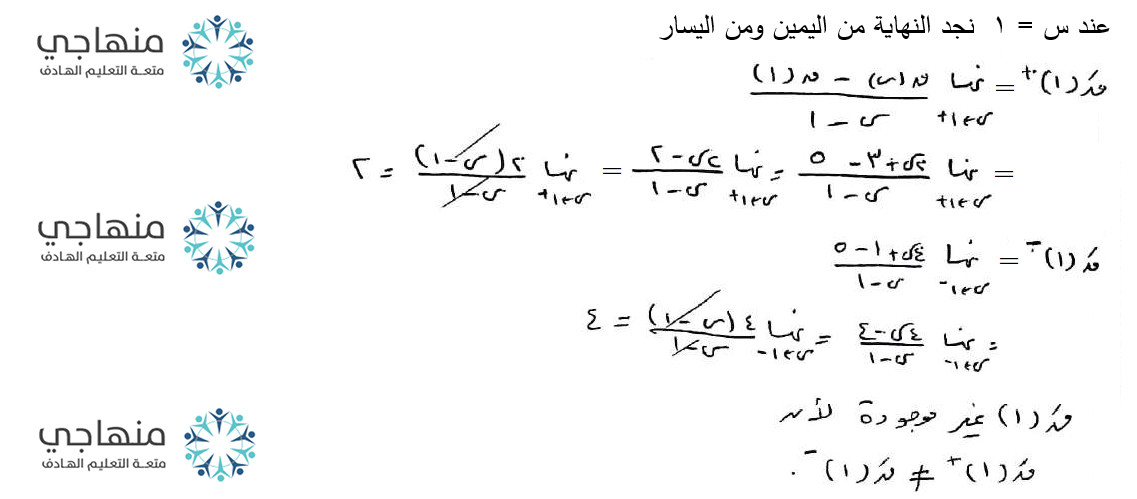 عند س = ١ نجد النهاية من اليمين ومن اليسار
قَ(١)+ = نهــا س←١+ (ق(س) − ق(١)) / (س − ١)
= نهــا س←١+ (٢س + ٣ − ٥) / (س − ١) = نهــا س←١+ (٢س − ٢) / (س − ١) = نهــا س←١+ ٢(س − ١) / (س − ١) = ٢
قَ(١)− = نهــا س←١− (٤س + ١ − ٥) / (س − ١)
= نهــا س←١− (٤س − ٤) / (س − ١) = نهــا س←١− ٤(س − ١) / (س − ١) = ٤
قَ(١) غير موجودة لأن
قَ(١)+ ≠ قَ(١)− .
منهاجي
متعة التعليم الهادف
منهاجي
متعة التعليم الهادف
منهاجي
متعة التعليم الهادف